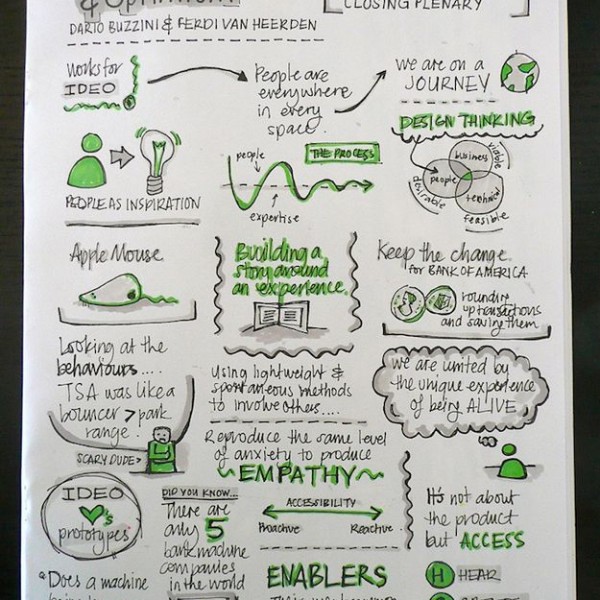 & Optimism
CLOSING PLENARY
DARIO BUZZINI & FERDI VAN HEERDEN
Works for
IDEO
People are
everywhere
in every
space.
We are on a
JOURNEY
PEOPLE AS INSPIRATION
people
THE PROCESS
expertise
DESIGN THINKING
business
viable
people
technical
desirable
feasible
Apple Mouse
Building a
story around
an experience.
Keep the change
for BANK OF AMERICA
rounding
up transactions
and saving them
Looking at the
behaviours....
TSA was like a
bouncer > park
range.
SCARY DUDE>
Using lightweight &
spontaneous methods
to involve others....
we are united by
the unique experience
of being ALIVE
Reproduce the same level
of anxiety to produce
~EMPATHY~
ACCESSIBILITY
Proactive
Reactive
IDEO
's
prototypes
DID YOU KNOW...
There are
only 5
bank machine
companies
in the world
It's not about
the product
but ACCESS
"Does a machine
ENABLERS
H HEAR